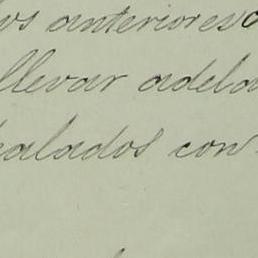 os anteriores
llevar adela
alados con